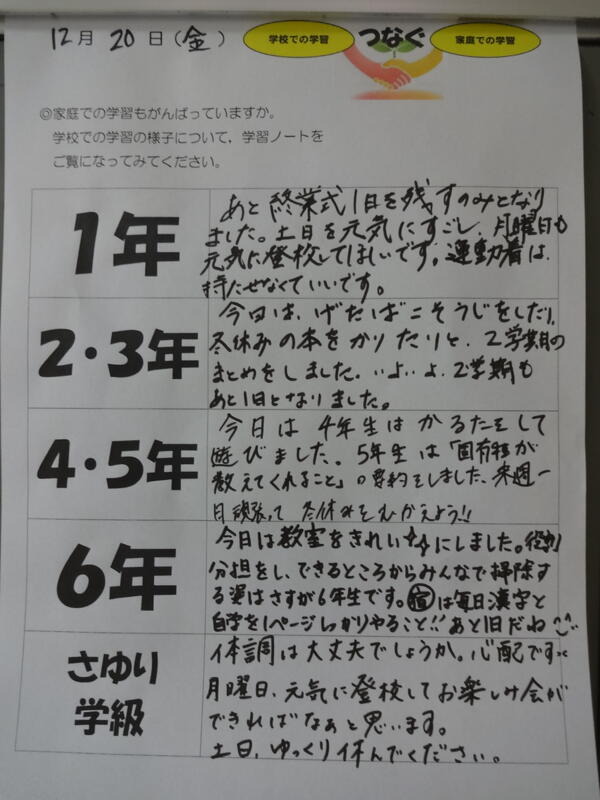 12月 20日(金)
学校での学習 つなぐ 家庭での学習
◎家庭での学習もがんばっていますか。
学校での学習の様子について,学習ノートを
ご覧になってみてください。
1年
あと終業式1日を残すのみとなり
ました。土日を元気にすごし、月曜日も
元気に登校してほしいです。運動着は、
持たせなくていいです。
2・3年
今日は、げたばこそうじをしたり、
冬休みの本をかりたりと、2学期の
まとめをしました。いよいよ、2学期も
あと1日となりました。
4・5年
今日は4年生はかるたをして
遊びました。5年生は「固有種が
教えてくれること」の要約をしました。来週一
日頑張って 冬休みをむかえよう!!
6年
今日は教室をきれいにしました。役割
分担をし、できるところからみんなで掃除す
る姿はさすが6年生です。宿は毎日漢字と
自学を1ページしっかりやること!!あと1日だね
さゆり
学級
体調は大丈夫でしょうか。心配です。
月曜日、元気に登校してお楽しみ会が
できればなぁと思います。
土日、ゆっくり休んでください。